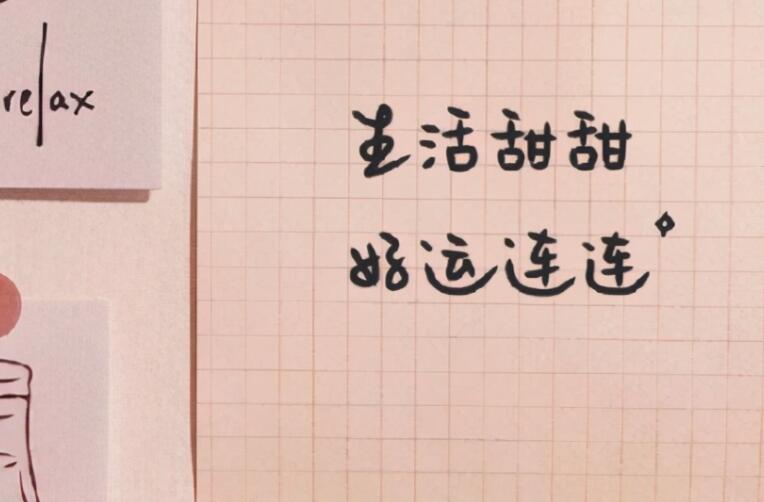 relax
生活甜甜
好运连连